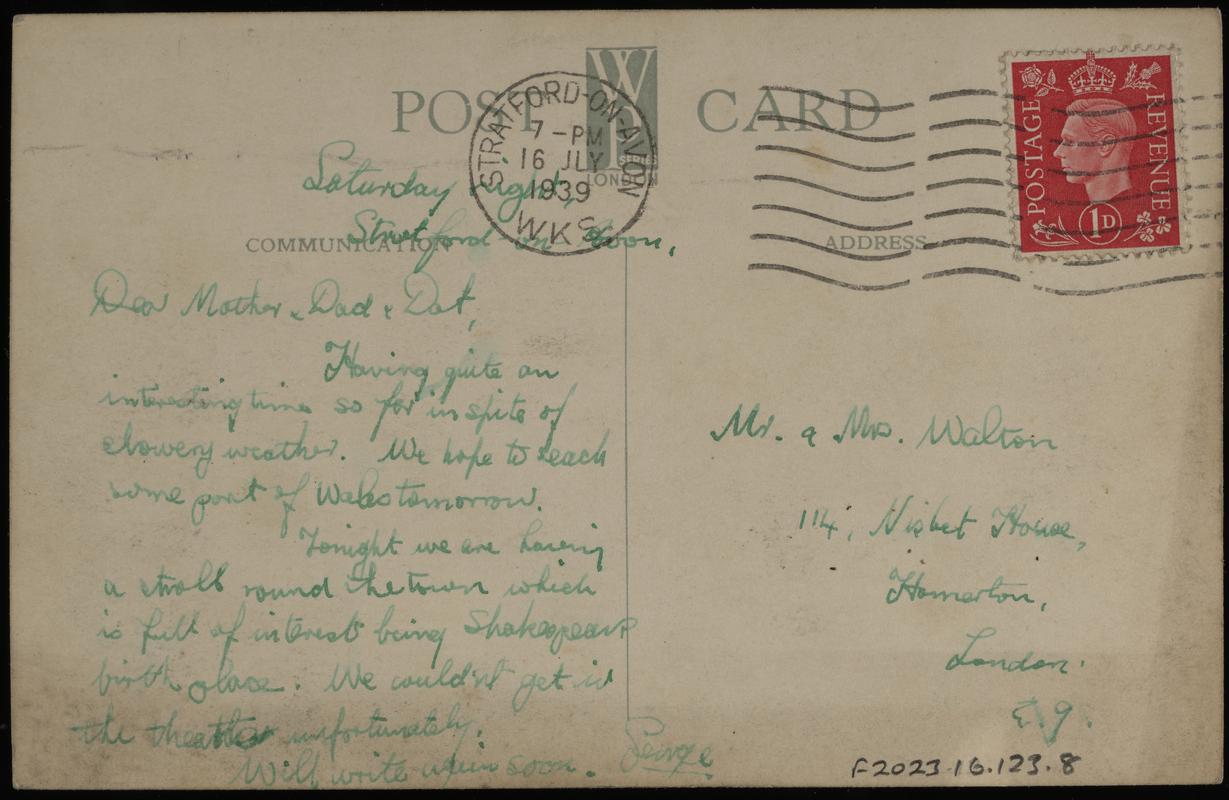 POST CARD
W
SERIES
LONDON
STRATFORD-ON-AVON
7-PM
16 JLY
1939
WKS
POSTAGE REVENUE
1D
COMMUNICATION
ADDRESS
Saturday night,
Stratford-on Avon,
Dear Mother, Dad & Dot,
Having quite an
interesting time so far in spite of
showery weather. We hope to reach
some part of Wales tomorrow.
Tonight we are having
a stroll round the town which
is full of interest being Shakespeare
birth place. We couldn't get in
the theatre unfortunately.
Will write again soon. George
Mr. & Mrs. Walton
114, Nisbet House,
Homerton,
London.
E 9.
F2023.16.123.8